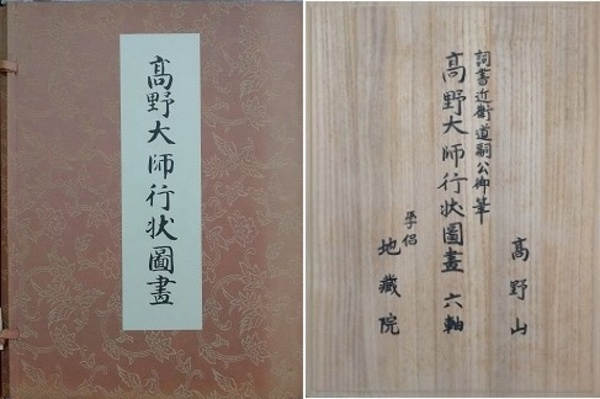 髙野大師行状圖畫
髙野山
詞書近衛道嗣公御筆
髙野大師行状圖畫 六軸
斈侶
地蔵院